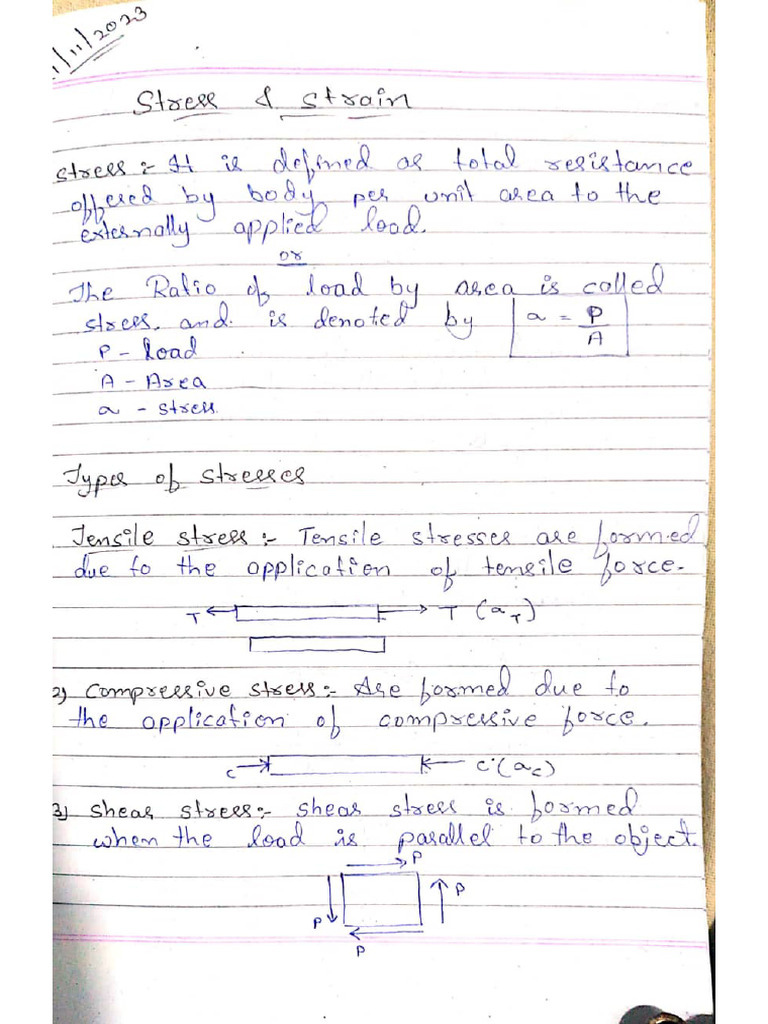 1/11/2023
Stress & strain
stress :- It is defined as total resistance
offered by body per unit area to the
externally applied load.
or
The Ratio of load by area is called
stress. and is denoted by a = P/A
P - Load
A - Area
a - stress
Types of stresses
Tensile stress :- Tensile stresses are formed
due to the application of tensile force.
T T (a_T)
2) Compressive stress :- Are formed due to
the application of compressive force.
C C (a_C)
3) Shear stress :- shear stress is formed
when the load is parallel to the object.
P
P
P
P